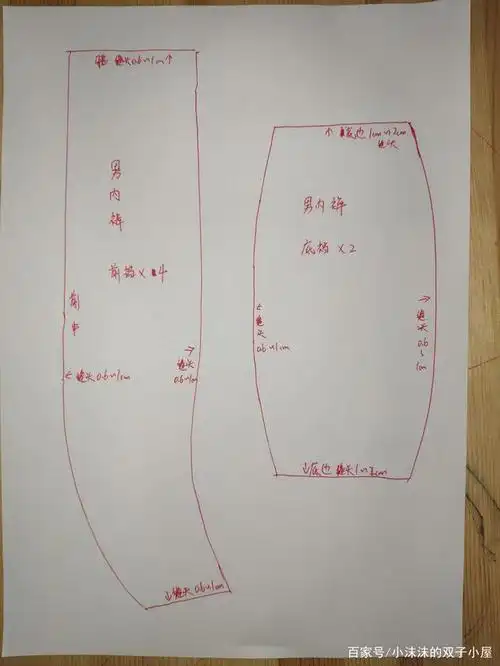 缝头 0.6~1cm ↑
男内裤
前裆×4
前中
← 缝头 0.6~1cm
→
缝头
0.6~1cm
↓缝头 0.6~1cm
↑ 1cm~2cm
缝头
男内裤
底裆×2
←
缝头
0.6~1cm
→
缝头
0.6~1cm
↓底边 缝头1~2cm
百家号/小沫沫的双子小屋